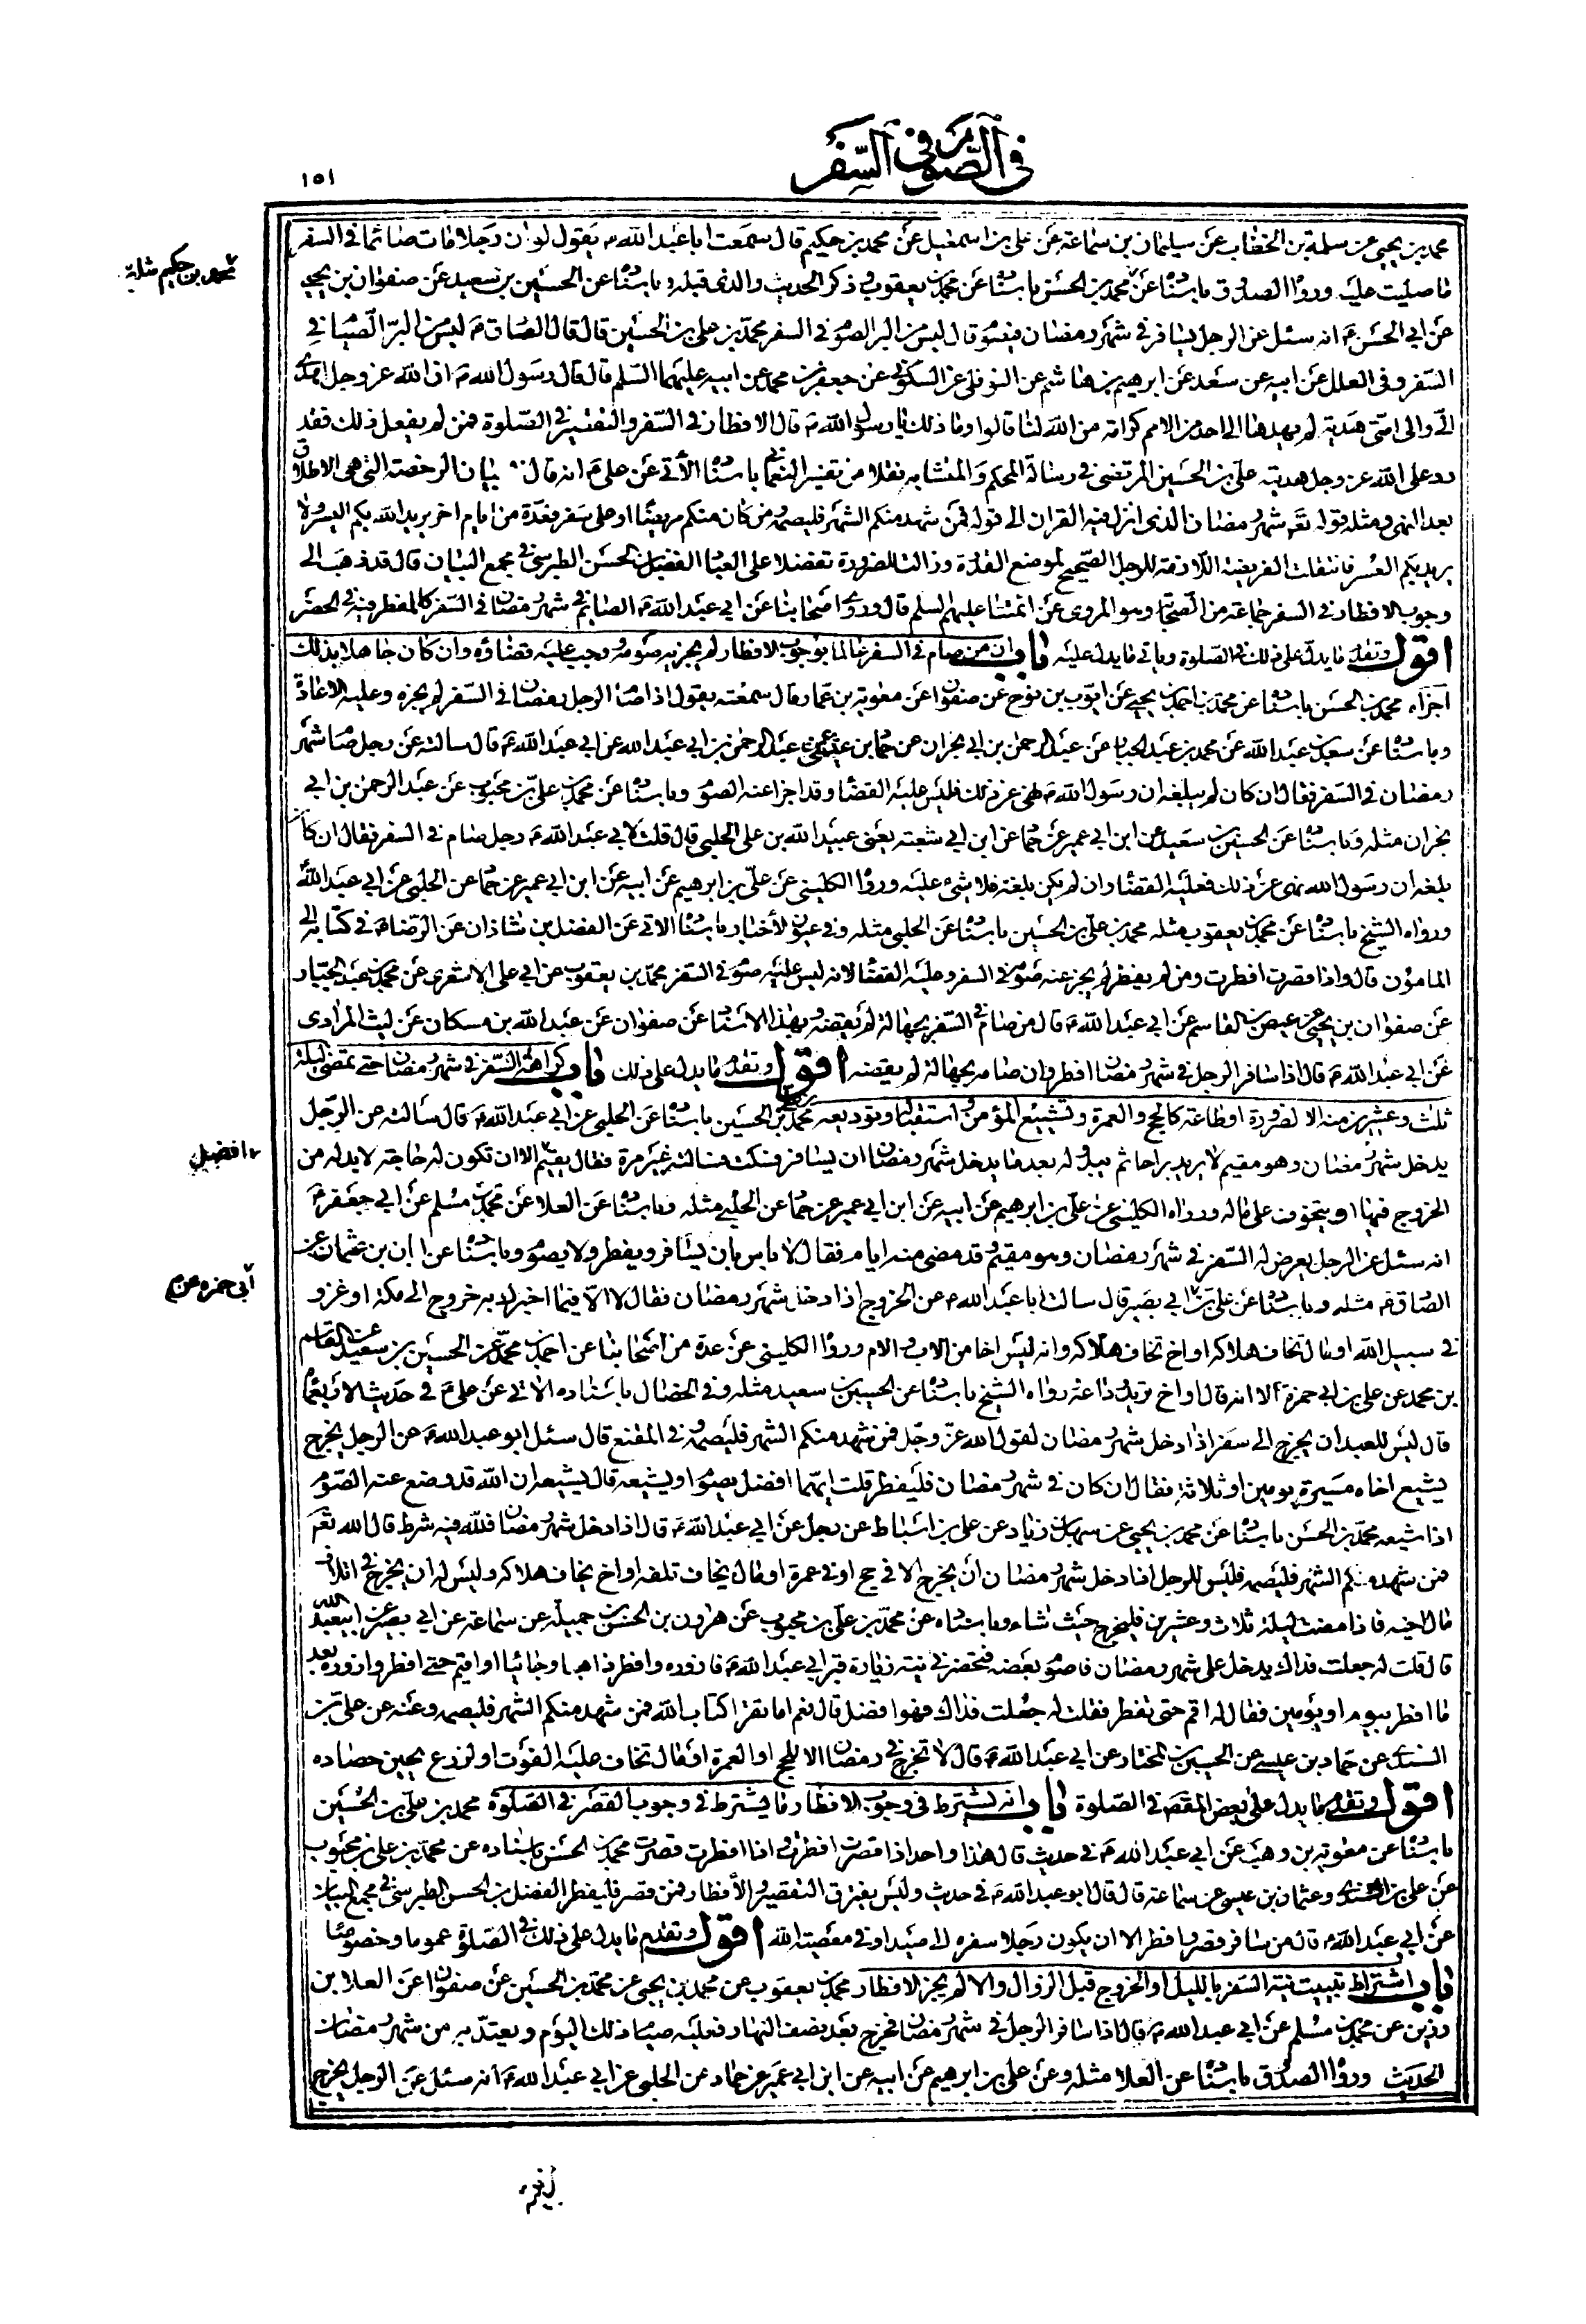 في الصوم في السفر
١٥١
محمد بن يحيى عن سلمة بن الخطاب عن سليمان بن سماعة عن علي بن اسمعيل عن محمد بن حكيم قال سمعت ابا عبد الله ع يقول لو ان رجلا مات صائما في السفر
محمد بن حكيم مثله
ما صليت عليه ورواه الصدوق باسناده عن محمد بن الحسن باسناده عن محمد بن يعقوب وذكر الحديث والذي قبله وباسناده عن الحسين بن سعيد عن صفوان بن يحيى
عن ابي الحسن ع انه سئل عن الرجل يسافر في شهر رمضان فيصوم قال ليس من البر الصوم في السفر محمد بن علي بن الحسين قال قال الصادق ع ليس من البر الصيام في
السفر وفي العلل عن ابيه عن سعد عن ابرهيم بن هاشم عن النوفلي عن السكوني عن جعفر بن محمد عن ابيه عليهما السلم قال قال رسول الله ص ان الله عز وجل اهدى
الي والى امتي هدية لم يهدها الى احد من الامم كرامة من الله لنا قالوا وما ذلك يا رسول الله ص قال الافطار في السفر والتقصير في الصلوة فمن لم يفعل ذلك فقد
رد على الله عز وجل هديته علي بن الحسين المرتضى في رسالة المحكم والمتشابه نقلا من تفسير النعماني باسناده الآتي عن علي ع انه قال بيان الرخصة التي هي الاطلاق
بعد النهي ومثله قوله تعم شهر رمضان الذي انزل فيه القران الى قوله فمن شهد منكم الشهر فليصمه ومن كان منكم مريضا او على سفر فعدة من ايام اخر يريد الله بكم اليسر ولا
يريد بكم العسر فانتقلت الفريضة اللازمة للرجل الصحيح لموضع القدرة وزالت للضرورة تفضلا على العباد الفضل بن الحسن الطبرسي في مجمع البيان قال قد ذهب الى
وجوب الافطار في السفر جماعة من الصحابة وهو المروي عن ائمتنا عليهم السلم قال وروى اصحابنا عن ابي عبد الله ع الصائم في شهر رمضان في السفر كالمفطر فيه في الحضر
اقول وتقدم ما يدل على ذلك في الصلوة وياتي ما يدل عليه باب ان من صام في السفر عالما بوجوب الافطار لم يجزيه صومه وجب عليه قضاؤه وان كان جاهلا بذلك
اجزاه محمد بن الحسن باسناده عن محمد بن احمد بن يحيى عن ايوب بن نوح عن صفوان عن معوية بن عمار قال سمعته يقول اذا صام الرجل رمضان في السفر لم يجزه وعليه الاعادة
وباسناده عن سعد بن عبد الله عن محمد بن عبد الجبار عن عبد الرحمن بن ابي نجران عن حماد بن عيسى عن عبد الرحمن بن ابي عبد الله عن ابي عبد الله ع قال سالته عن رجل صام شهر
رمضان في السفر فقال ان كان لم يبلغه ان رسول الله ص نهى عن ذلك فليس عليه القضاء وقد اجزا عنه الصوم وباسناده عن محمد بن علي بن محبوب عن عبد الرحمن بن ابي
نجران مثله وباسناده عن الحسين بن سعيد عن ابن ابي عمير عن حماد عن ابن ابي شعبة يعني عبيد الله بن علي الحلبي قال قلت لابي عبد الله ع رجل صام في السفر فقال ان كان
بلغه ان رسول الله نهى عن ذلك فعليه القضاء وان لم يكن بلغه فلا شيء عليه ورواه الكليني عن علي بن ابرهيم عن ابيه عن ابن ابي عمير عن حماد عن الحلبي عن ابي عبد الله
ورواه الشيخ باسناده عن محمد بن يعقوب مثله محمد بن علي بن الحسين باسناده عن الحلبي مثله وفي عيون الأخبار باسناده الاتي عن الفضل بن شاذان عن الرضا ع في كتابه الى
المامون قال واذا قصرت افطرت ومن لم يفطر لم يجز عنه صومه في السفر وعليه القضاء لانه ليس عليه صوم في السفر محمد بن يعقوب عن ابي علي الاشعري عن محمد بن عبد الجبار
عن صفوان بن يحيى عن عيص بن القاسم عن ابي عبد الله ع قال من صام في السفر بجهالة لم يقضه وبهذا الاسناد عن صفوان عن عبد الله بن مسكان عن ليث المرادي
عن ابي عبد الله ع قال اذا سافر الرجل في شهر رمضان افطر وان صامه بجهالة لم يقضه اقول وتقدم ما يدل على ذلك باب كراهة السفر في شهر رمضان حتى تمضي ليلة
ثلث وعشرين منه الا لضرورة او طاعة كالحج والعمرة وتشييع المؤمن واستقباله وتوديعه محمد بن الحسين باسناده عن الحلبي عن ابي عبد الله ع قال سالته عن الرجل
افضل
يدخل شهر رمضان وهو مقيم لا يريد براحا ثم يبدو له بعد ما يدخل شهر رمضان ان يسافر فسكت فسالته غير مرة فقال يقيم الا ان تكون له حاجة لا بد له من
الخروج فيها او يتخوف على ماله ورواه الكليني عن علي بن ابرهيم عن ابيه عن ابن ابي عمير عن حماد عن الحلبي مثله وباسناده عن العلا عن محمد بن مسلم عن ابي جعفر ع
انه سئل عن الرجل يعرض له السفر في شهر رمضان وهو مقيم وقد مضى منه ايام فقال لا باس بان يسافر ويفطر ولا يصوم وباسناده عن ابان بن عثمان عن
ابي حمزه عن
الصادق ع مثله وباسناده عن علي بن ابي بصير قال سالت ابا عبد الله ع عن الخروج اذا دخل شهر رمضان فقال لا الا فيما اخبرك به خروج الى مكة او غزو
في سبيل الله او مال تخاف هلاكه او اخ تخاف هلاكه وانه ليس اخا من الاب والام ورواه الكليني عن عدة من اصحابنا عن احمد بن محمد عن الحسين بن سعيد عن القاسم
بن محمد عن علي بن ابي حمزة الا انه قال او اخ تريد وداعه رواه الشيخ باسناده عن الحسين بن سعيد مثله وفي الخصال باسناده الاتي عن علي ع في حديث الاربعمائة
قال ليس للعبد ان يخرج الى سفر اذا دخل شهر رمضان لقول الله عز وجل فمن شهد منكم الشهر فليصمه وفي المقنع قال سئل ابو عبد الله ع عن الرجل يخرج
يشيع اخاه مسيرة يومين او ثلاثة فقال ان كان في شهر رمضان فليفطر قلت ايهما افضل يصوم او يشيعه قال يشيعه ان الله قد وضع عنه الصوم
اذا شيعه محمد بن الحسن باسناده عن محمد بن يحيى عن سهل بن زياد عن علي بن اسباط عن رجل عن ابي عبد الله ع قال اذا دخل شهر رمضان فلله فيه شرط قال الله تعم
فمن شهد منكم الشهر فليصمه فليس للرجل اذا دخل شهر رمضان ان يخرج الا في حج او في عمرة او مال يخاف تلفه او اخ يخاف هلاكه وليس له ان يخرج في اتلاف
مال اخيه فاذا مضت ليلة ثلاث وعشرين فليخرج حيث شاء وباسناده عن محمد بن علي بن محبوب عن هرون بن الحسن بن جميلة عن سماعة عن ابي بصير عن ابي عبد الله
قال قلت له جعلت فداك يدخل علي شهر رمضان فاصوم بعضه فتحضرني نية زيارة قبر ابي عبد الله ع فازوره وافطر ذاهبا وجائيا او اقيم حتى افطر وازوره بعد
ما افطر بيوم او يومين فقال له اقم حتى تفطر فقلت له جعلت فداك فهو افضل قال نعم اما تقرا كتاب الله فمن شهد منكم الشهر فليصمه وعنه عن علي بن
السندي عن حماد بن عيسى عن الحسين بن المختار عن ابي عبد الله ع قال لا تخرج في رمضان الا للحج او العمرة او مال تخاف عليه الفوت او لزرع يحين حصاده
اقول وتقدم ما يدل على بعض المقصود في الصلوة باب انه يشترط في وجوب الافطار ما يشترط في وجوب القصر في الصلوة محمد بن علي بن الحسين
باسناده عن معوية بن وهب عن ابي عبد الله ع في حديث قال هذا واحد اذا قصرت افطرت واذا افطرت قصرت محمد بن الحسن باسناده عن محمد بن علي بن محبوب
عن علي بن السندي وعثمان بن عيسى عن سماعة قال قال ابو عبد الله ع في حديث وليس يفترق التقصير والأفطار فمن قصر فليفطر الفضل بن الحسن الطبرسي في مجمع البيان
عن ابي عبد الله ع قال من سافر قصر وافطر الا ان يكون رجلا سفره الى صيد او في معصية الله اقول وتقدم ما يدل على ذلك في الصلوة عموما وخصوصا
باب اشتراط تبييت نية السفر بالليل او الخروج قبل الزوال والا لم يجز الافطار محمد بن يعقوب عن محمد بن يحيى عن محمد بن الحسين عن صفوان عن العلا بن
رزين عن محمد بن مسلم عن ابي عبد الله ع قال اذا سافر الرجل في شهر رمضان فخرج بعد نصف النهار فعليه صيام ذلك اليوم ويعتد به من شهر رمضان
الحديث ورواه الصدوق باسناده عن العلا مثله وعن علي بن ابرهيم عن ابيه عن ابن ابي عمير عن حماد عن الحلبي عن ابي عبد الله ع انه سئل عن الرجل يخرج